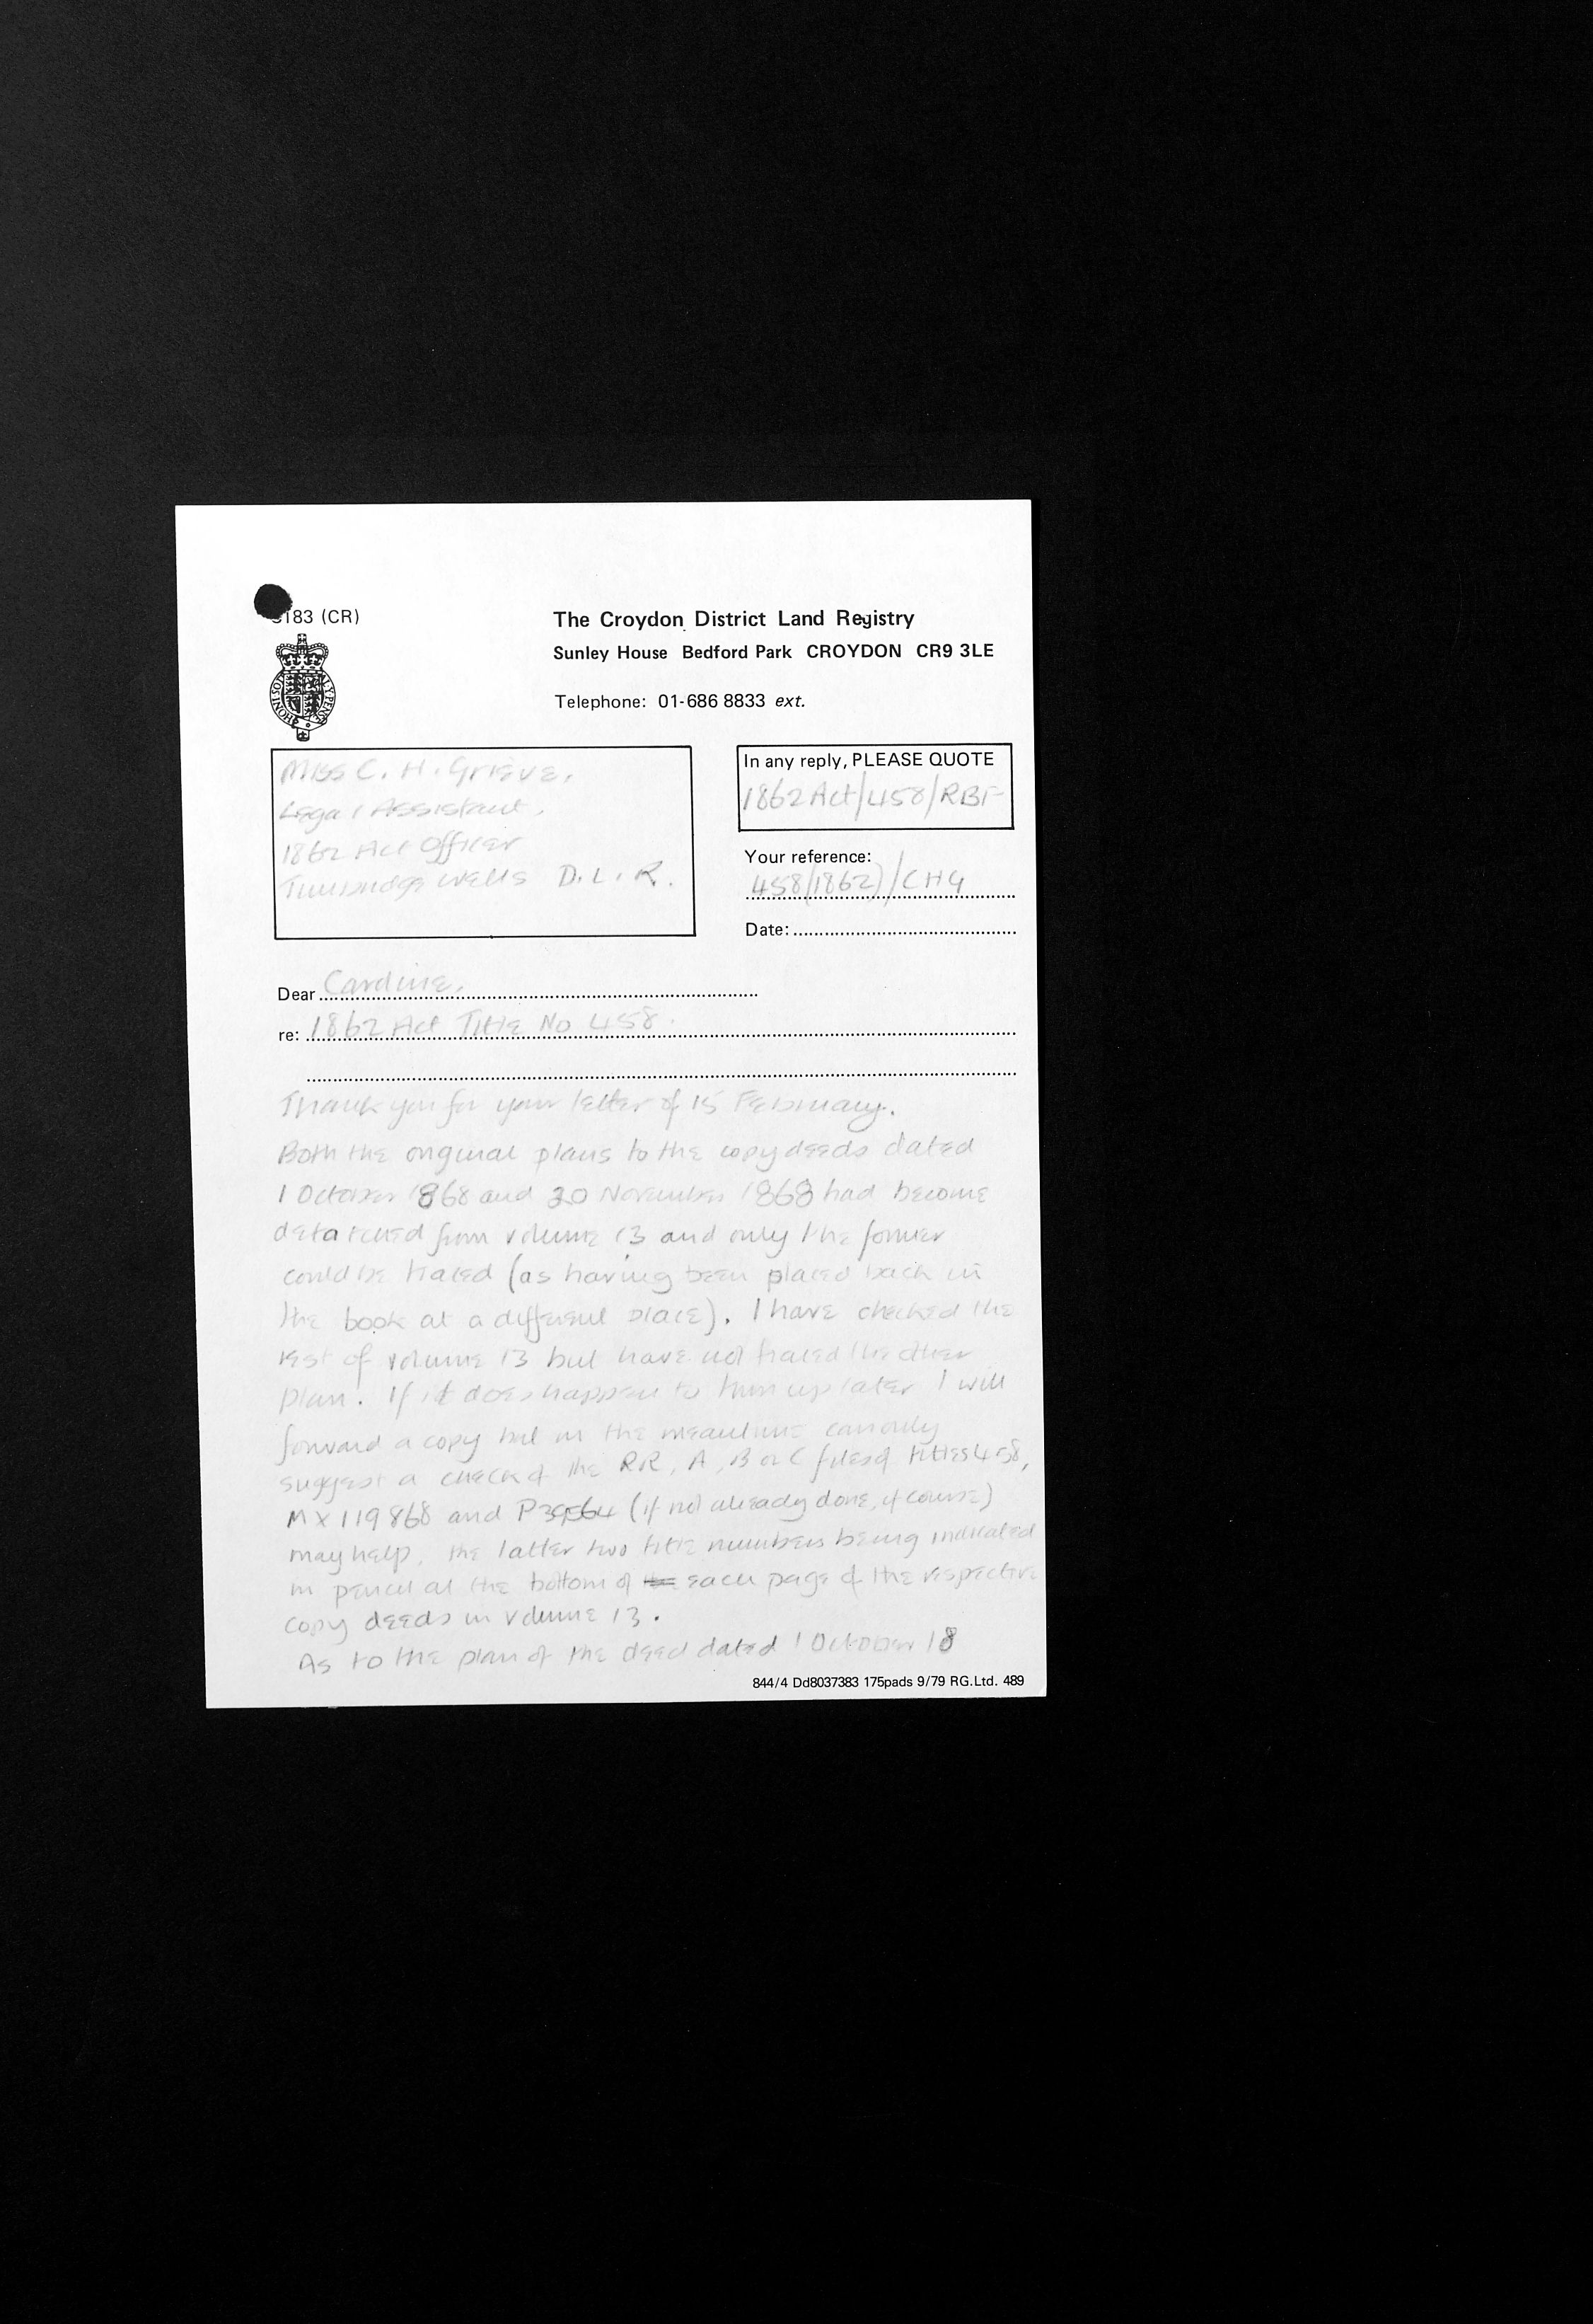 183 (CR)
The Croydon District Land Registry
Sunley House Bedford Park CROYDON CR9 3LE
Telephone: 01-686 8833 ext.
Miss C. H. Grieve,
Legal Assistant,
1862 Act Officer
Tunbridge Wells D.L.R.
In any reply, PLEASE QUOTE
1862 Act/458/RBF
Your reference:
458(1862)/CHG
Date:
Dear Caroline,
re: 1862 Act Title No 458.
Thank you for your letter of 15 February.
Both the original plans to the copy deeds dated
1 October 1868 and 30 November 1868 had become
detatched from volume 13 and only the former
could be traced (as having been placed back in
the book at a different place). I have checked the
rest of volume 13 but have not traced the other
plan. If it does happen to turn up later I will
forward a copy but in the meantime can only
suggest a check of the RR, A, B or C files of titles 458,
MX 119868 and (if not already done, of course)
may help, the latter two title numbers being indicated
in pencil at the bottom of each page of the respective
copy deeds in volume 13.
As to the plan of the deed dated 1 October 18
844/4 Dd8037383 175pads 9/79 RG.Ltd. 489